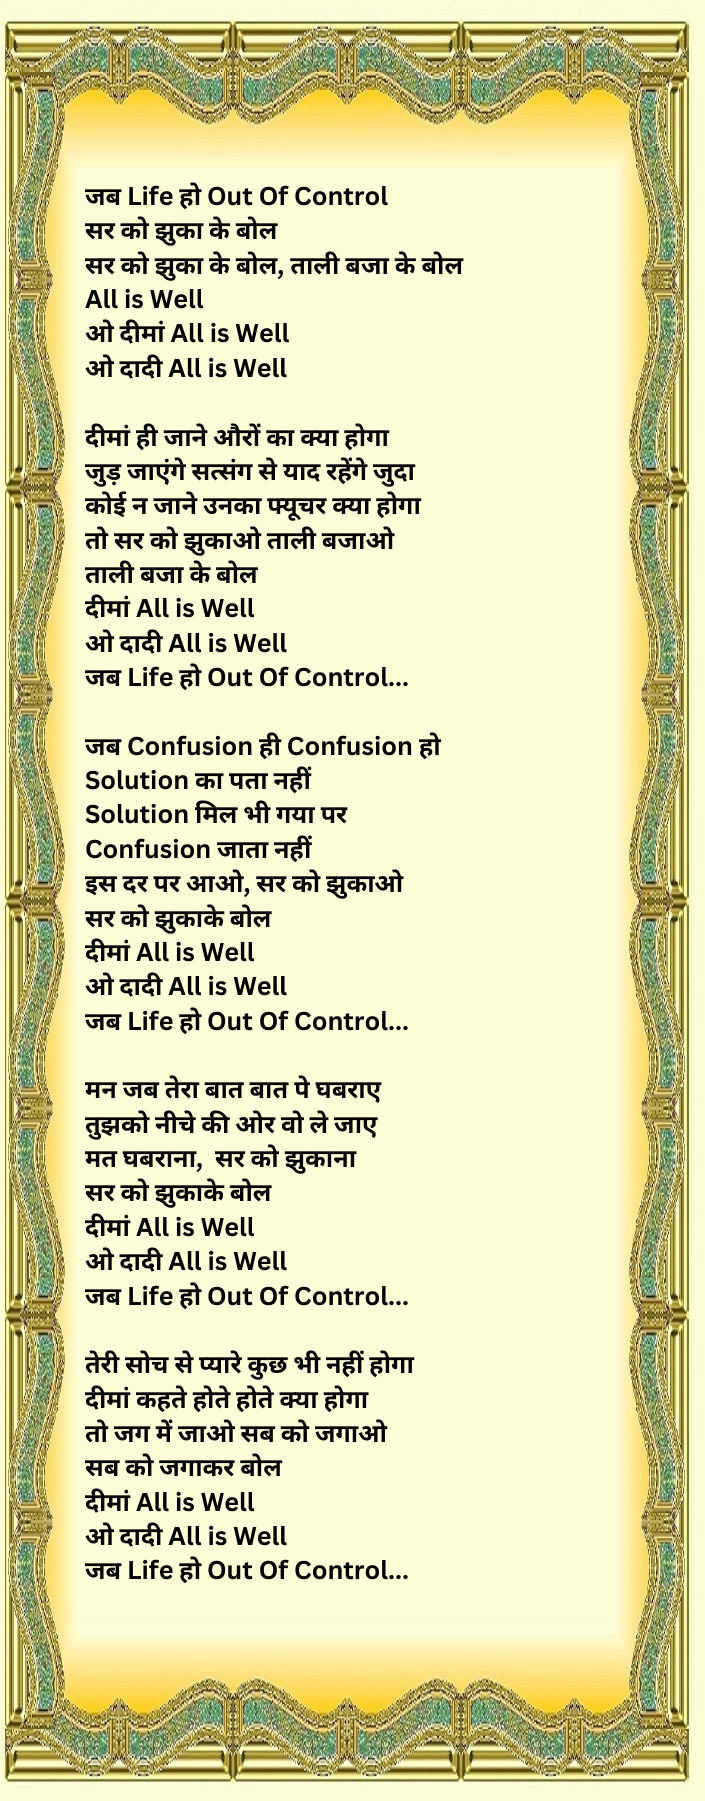 जब Life हो Out Of Control
सर को झुका के बोल
सर को झुका के बोल, ताली बजा के बोल
All is Well
ओ दीमां All is Well
ओ दादी All is Well
दीमां ही जाने औरों का क्या होगा
जुड़ जाएंगे सत्संग से याद रहेंगे जुदा
कोई न जाने उनका फ्यूचर क्या होगा
तो सर को झुकाओ ताली बजाओ
ताली बजा के बोल
दीमां All is Well
ओ दादी All is Well
जब Life हो Out Of Control...
जब Confusion ही Confusion हो
Solution का पता नहीं
Solution मिल भी गया पर
Confusion जाता नहीं
इस दर पर आओ, सर को झुकाओ
सर को झुकाके बोल
दीमां All is Well
ओ दादी All is Well
जब Life हो Out Of Control...
मन जब तेरा बात बात पे घबराए
तुझको नीचे की ओर वो ले जाए
मत घबराना,  सर को झुकाना
सर को झुकाके बोल
दीमां All is Well
ओ दादी All is Well
जब Life हो Out Of Control...
तेरी सोच से प्यारे कुछ भी नहीं होगा
दीमां कहते होते होते क्या होगा
तो जग में जाओ सब को जगाओ
सब को जगाकर बोल
दीमां All is Well
ओ दादी All is Well
जब Life हो Out Of Control...